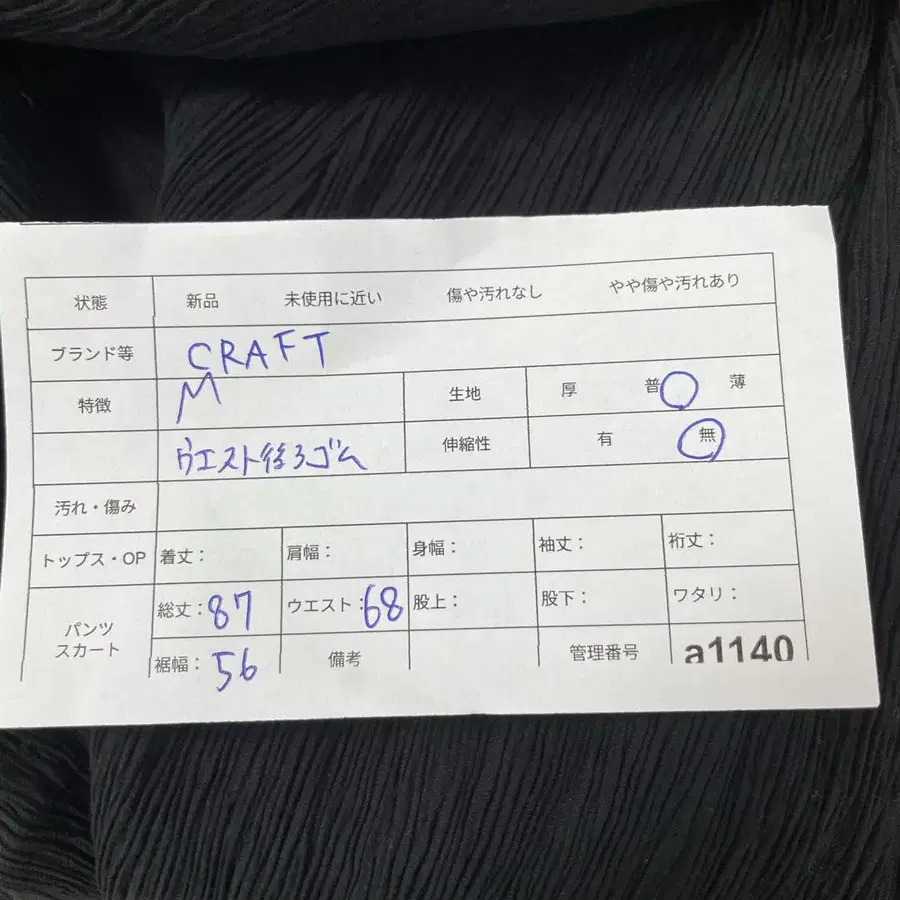 状態 新品 未使用に近い 傷や汚れなし やや傷や汚れあり
ブランド等 CRAFT
特徴 M 生地 厚 普 薄
ウエスト後ろゴム 伸縮性 有 無
汚れ・傷み
トップス・OP 着丈: 肩幅: 身幅: 袖丈: 裄丈:
パンツ スカート 総丈:87 ウエスト:68 股上: 股下: ワタリ:
裾幅:56 備考 管理番号 a1140